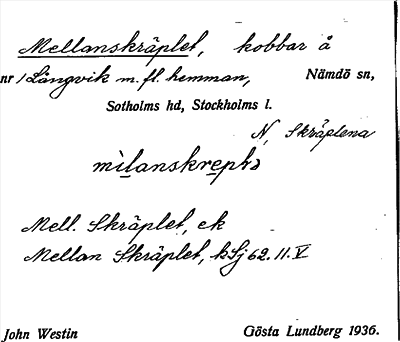 Mellanskräplet, kobbar å
nr 1 Långvik m. fl. hemman, Nämdö sn,
Sotholms hd, Stockholms l.
N, Skräplena
mìlanskrepḷə
Mell. Skräplet, ek
Mellan Skräplet, bSj 62. 11. V
John Westin Gösta Lundberg 1936.